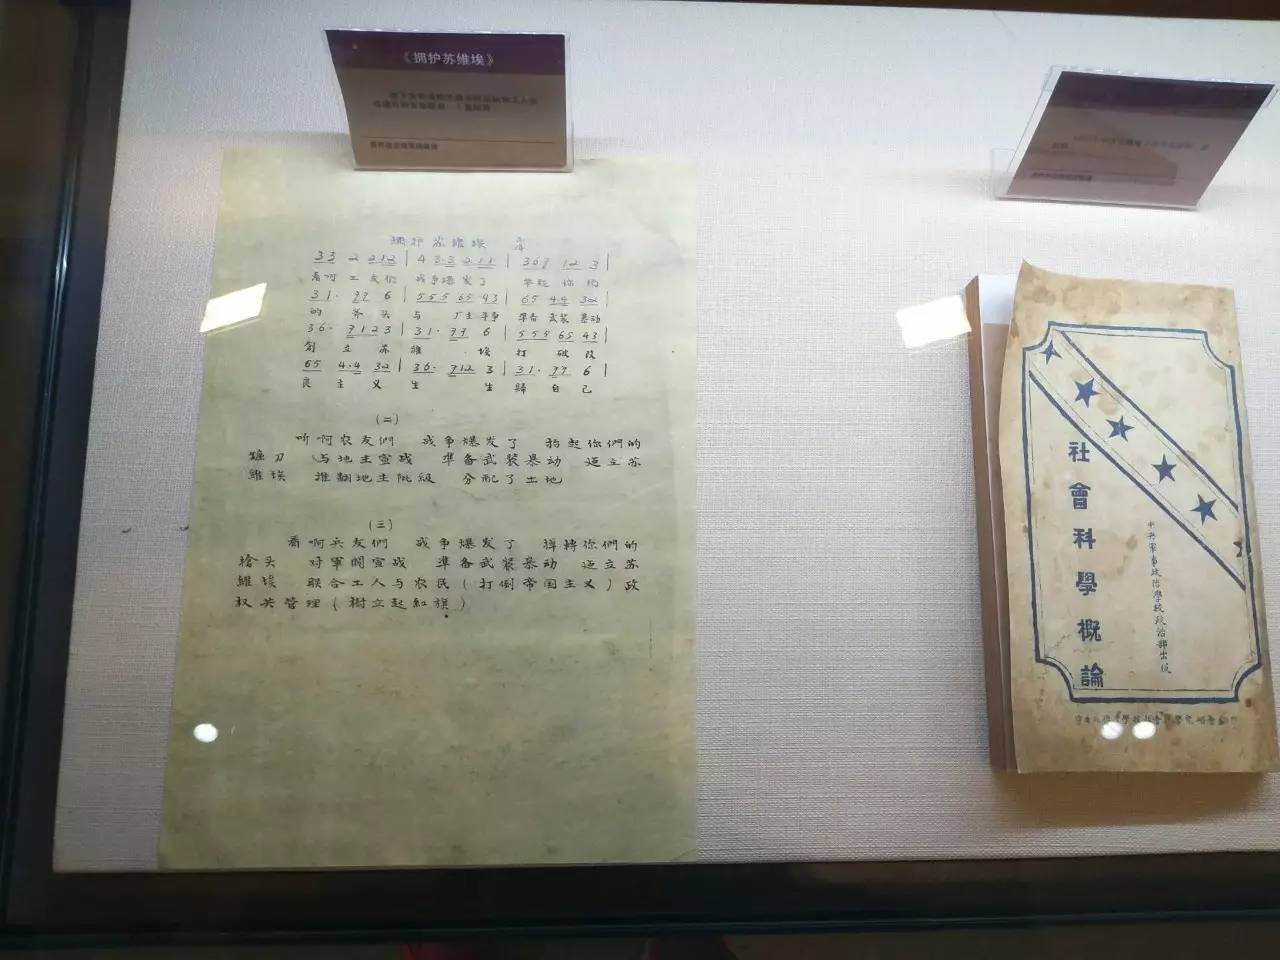 《拥护苏维埃》
拥护苏維埃
33 2 212 | 4 33 211 | 367 12 3 |
看呵工友们 战争爆发了 举起你们
31· 77 6 | 555 65 43 | 65 44 32 |
的斧头与厂主斗争 準备武装暴动
36· 7123 | 31· 77 6 | 555 65 43 |
創立苏維埃打破改
65 4·4 32 | 36· 712 3 | 31· 77 6 |
良主义生生歸自己
(二)
听啊农友們 战争爆发了 抬起你們的
鐮刀 与地主宣战 準备武装暴动 建立苏
維埃 推翻地主阶級 分配了土地
(三)
看啊兵友們 战争爆发了 掉轉你們的
槍头 对軍閥宣战 準备武装暴动 建立苏
維埃 联合工人与农民(打倒帝国主义)政
权共管理(樹立起紅旗)
社會科學概論
中央軍事政治學校政治部出版